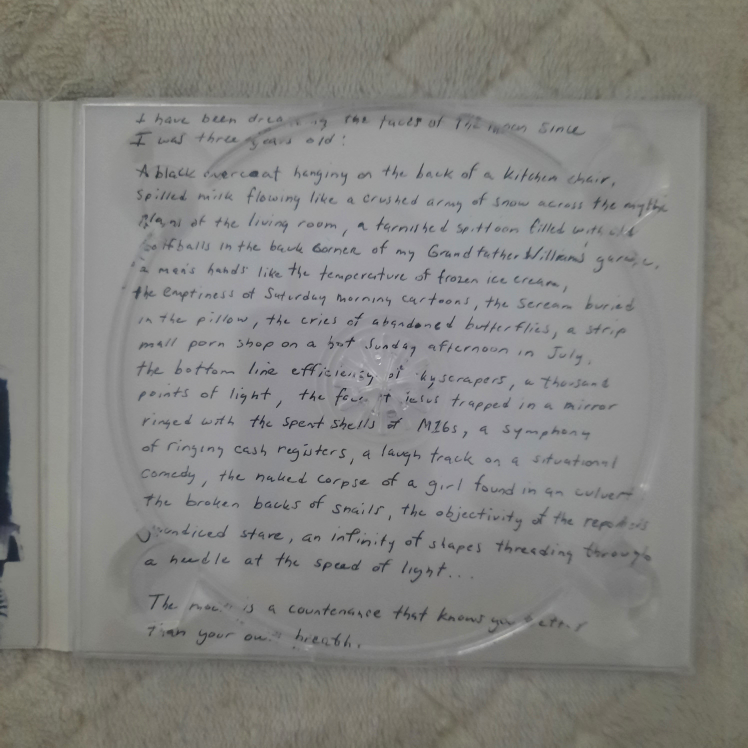 I have been dreaming the faces of the moon since
I was three years old:
A black overcoat hanging on the back of a kitchen chair,
spilled milk flowing like a crushed army of snow across the mythic
plains of the living room, a tarnished spittoon filled with old
softballs in the back corner of my Grandfather William's garage,
a man's hands like the temperature of frozen ice cream,
the emptiness of Saturday morning cartoons, the scream buried
in the pillow, the cries of abandoned butterflies, a strip
mall porn shop on a hot Sunday afternoon in July,
the bottom line efficiency of skyscrapers, a thousand
points of light, the face of Jesus trapped in a mirror
ringed with the spent shells of M16s, a symphony
of ringing cash registers, a laugh track on a situational
comedy, the naked corpse of a girl found in an culvert
the broken backs of snails, the objectivity of the reporters
jaundiced stare, an infinity of shapes threading through
a needle at the speed of light...
The moon is a countenance that knows you better
than your own breath.